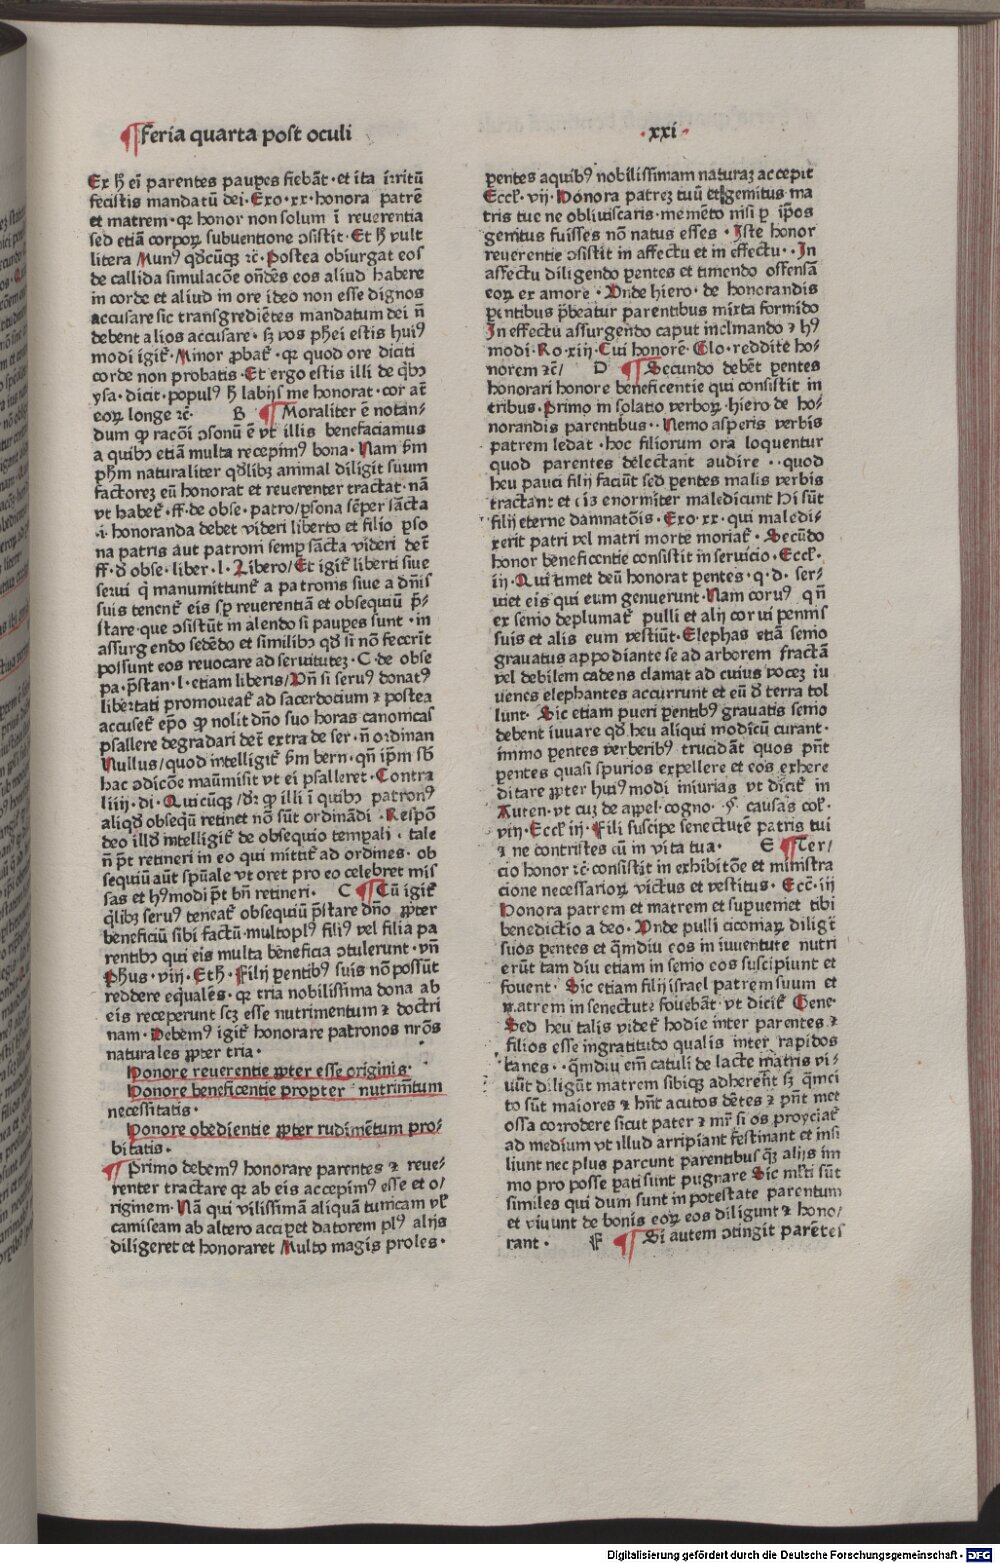 ¶Feria quarta post oculi
·xxi·
Ex ħ ei parentes paupes fiebãt·et ita irritũ
fecistis mandatũ dei·Exo·xx·honora patrẽ
et matrem·qꝛ honor non solum ĩ reuerentia
sed etiã corpoꝝ subuentione ↄsistit·Et ħ vult
litera /Nunꝰ qđcũqꝫ ⁊c·Postea obiurgat eos
de callida simulacõe onđẽs eos aliud habere
in corde et aliud in ore ideo non esse dignos
accusare sic transgrediẽtes mandatum dei ñ
debent alios accusare·sꝫ vos pħei estis huiꝰ
modi igit̃·Minor ꝓbat̃·qꝛ quod ore diciti
corde non probatis·Et ergo estis illi de q̃bꝫ
ysa·dicit·populꝰ ħ labijs me honorat·cor at̃
eoꝝ longe ⁊c· B ¶Moraliter ẽ notan-
dum ꝙ racõi ↄsonũ ẽ vt illis benefaciamus
a quibꝫ etiã multa recepimꝰ bona·Nam ẜm
pħm naturaliter qđlibꝫ animal diligit suum
factoreꝫ eũ honorat et reuerenter tractat·nã
vt habet̃·ff·de obse·patro/ꝑsona sẽper sãcta
·i·honoranda debet videri liberto et filio ꝑso
na patris aut patroni semꝑ sãcta videri det̃
ff·đ obse·liber·l·Libero/Et igit̃ liberti siue
serui q̃ manumittunt̃ a patronis siue a dñis
suis tenent̃ eis sꝑ reuerentiã et obsequiũ p̃-
stare·que ↄsistũt in alendo si pauꝑes sunt·in
assurgendo sedẽdo et similibꝫ qđ si nõ fecerĩt
possunt eos reuocare ad seruituteꝫ·C·de obse
pa·p̃stan·l·etiam liberis/Vñ si seruꝰ donatꝰ
libertati promoueat̃ ad sacerdocium ⁊ postea
accuset̃ epõ ꝙ nolit dño suo horas canonicas
psallere degradari det̃ extra de ser·ñ ordinan
Nullus/quod intelligit̃ ẜm bern·qñ ip̃m sb̃
hac ↄdicõe maũmisit vt ei psalleret·Contra
liiij·di·Quicũqꝫ/đꝛ ꝙ illi ĩ quibꝫ patronꝰ
aliqđ obseqũ retinet nõ sũt ordinãdi·Respõ
deo illđ intelligit̃ de obsequio tempali·tale
ñ p̃t retineri in eo qui mittit̃ ad ordines·ob
sequiũ aũt sp̃uale vt oret pro eo celebret mis
sas et hꝰmodi p̃t bñ retineri· C ¶Cũ igit̃
q̃libꝫ seruꝰ teneat̃ obsequiũ p̃stare dño ꝓpter
beneficiũ sibi factũ·multoplꝰ filiꝰ vel filia pa
rentibꝫ qui eis multa beneficia ↄtulerunt·vñ
Phus·viij·Eth·Filij ꝑentibꝰ suis nõ possũt
reddere equales·qꝛ tria nobilissima dona ab
eis receperunt scꝫ esse nutrimentuꝫ ⁊ doctri
nam·Debemꝰ igit̃ honorare patronos nr̃os
naturales ꝓpter tria·
Honore reuerentie ꝓpter esse originis·
Honore beneficentie propter nutrimẽtum
necessitatis·
Honore obedientie ꝓpter rudimẽtum pro-
bitatis·
¶Primo debemꝰ honorare parentes ⁊ reue-
renter tractare qꝛ ab eis accepimꝰ esse et o/
riginem·Nã qui vilissimã aliquã tunicam vl̃
camiseam ab altero acciꝑet datorem plꝰ alijs
diligeret et honoraret Multo magis proles·
ꝑentes a quibꝰ nobilissimam naturaꝫ accepit
Eccl̃·vij·Honora patreꝫ tuũ et gemitus ma
tris tue ne obliuiscaris·memẽto nisi ꝑ ip̃os
genitus fuisses nõ natus esses·Iste honor
reuerentie ↄsistit in affectu et in effectu··In
affectu diligendo ꝑentes et timendo offensã
eoꝝ ex amore·Vnde hiero·de honorandis
ꝑentibus p̃beatur parentibus mixta formido
In effectu assurgendo caput inclinando ⁊ hꝰ
modi·Ro·xiij·Cui honorẽ·Glo·reddite ho-
norem ⁊c̃/ D ¶Secundo debẽt ꝑentes
honorari honore beneficentie qui consistit in
tribus·Primo in solatio verboꝝ·hiero de ho-
norandis parentibus··Nemo asperis verbis
patrem ledat·hoc filiorum ora loquentur
quod parentes delectant audire··quod
heu pauci filij faciũt sed ꝑentes malis verbis
tractant et eis enormiter maledicunt Hi sũt
filij eterne damnatõis·Exo·xx·qui maledi-
xerit patri vel matri morte moriat̃·Secũdo
honor beneficentie consistit in seruicio·Eccl̃·
iij·Qui timet deũ honorat ꝑentes·q·d·ser-
uiet eis qui eum genuerunt·Nam coruꝰ qñ
ex senio deplumat̃ pulli et alij corui pennis
suis et alis eum vestiũt·Elephas etiã senio
grauatus appodiante se ad arborem fractã
vel debilem cadens clamat ad cuius voceꝫ iu
uenes elephantes accurrunt et eũ đ terra tol
lunt·Sic etiam pueri ꝑentibꝰ grauatis senio
debent iuuare qđ heu aliqui modicũ curant·
immo ꝑentes verberibꝰ trucidãt quos pñt
ꝑentes quasi spurios expellere et eos exhere
ditare ꝓpter huiꝰmodi iniurias vt dicit̃ in
Auten·vt cuꝫ de appel·cogno·§·causas col·
viij·Eccl̃ iij·Fili suscipe senectutẽ patris tui
⁊ ne contristes eũ in vita tua· E ¶Ter/
cio honor ⁊c·consistit in exhibitõe et ministra
cione necessarioꝝ victus et vestitus·Ecc̃·iij
Honora patrem et matrem et suꝑueniet tibi
benedictio a deo·Vnde pulli ciconiaꝝ diligũt
suos ꝑentes et q̃mdiu eos in iuuentute nutri
erũt tam diu etiam in senio eos suscipiunt et
fouent·Sic etiam filij israel patrem suum et
matrem in senectute fouebãt·vt dicit̃ Gene·
Sed heu talis videt̃ hodie inter parentes ⁊
filios esse ingratitudo qualis inter rapidos
canes·q̃mdiu em̃ catuli de lacte matris vi-
uũt diligũt matrem sibiqꝫ adherent sꝫ q̃mci
to sũt maiores ⁊ hñt acutos dẽtes ⁊ pñt met
ossa corrodere sicut pater ⁊ mr̃ si os proyciat̃
ad medium vt illud arripiant festinant et insi
liunt nec plus parcunt parentibus q̃ꝫ alijs im
mo pro posse pati sunt pugnare Sic ml̃ti sũt
similes qui dum sunt in potestate parentum
et viuunt de bonis eoꝝ eos diligunt ⁊ hono/
rant· F ¶Si autem ↄtingit parẽtes
Digitalisierung gefördert durch die Deutsche Forschungsgemeinschaft - DFG